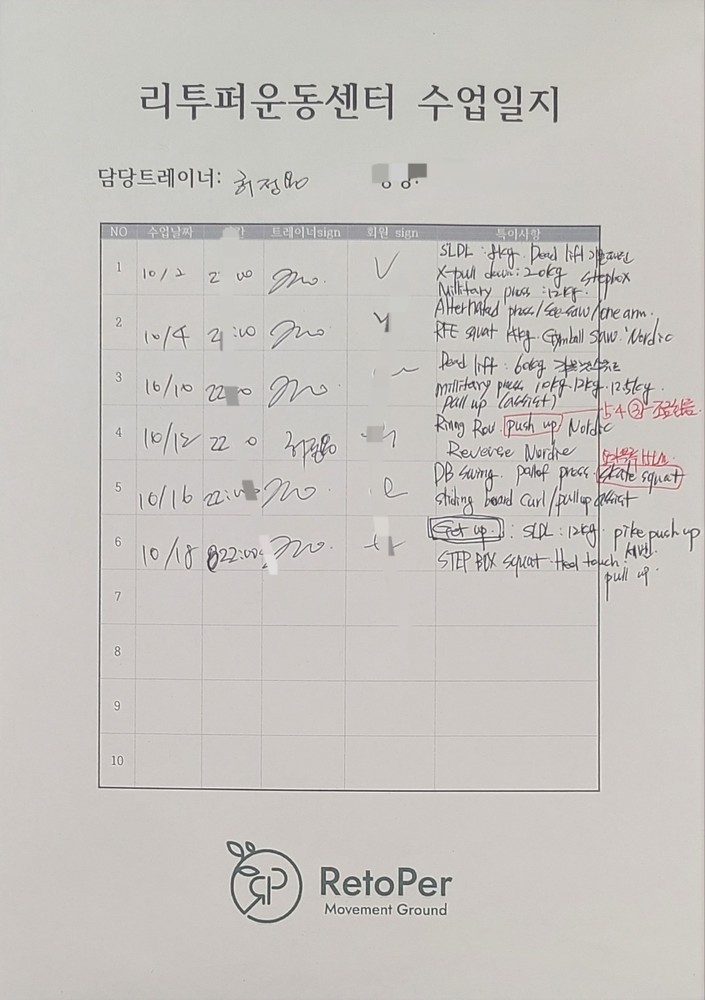 리투퍼운동센터 수업일지
담당트레이너: 허정용
NO 수업날짜 트레이너sign 회원 sign 특이사항
1 10/2 2 00
SLDL : 8kg. Dead lift
X-pull down : 20kg stepbox
Millitary press : 12kg.
2 10/4 21:00
Alternated press/see-saw/one arm.
RFE squat 14kg. Gymball saw. Nordic
3 10/10 22 0
Dead lift : 60kg
millitary press 10kg. 12kg. 12.5kg.
pull up (assist)
4 10/12 22 0 허정용
5 4 3
Ring Row. push up Nordic
Reverse Nordic
5 10/16 22:00
DB swing. pallof press. skate squat
sliding board curl/pull up assist
6 10/18 22:00
Get up. : SLDL : 12kg. pike push up
STEP BOX squat. Heel touch.
pull up.
7
8
9
10
RetoPer
Movement Ground